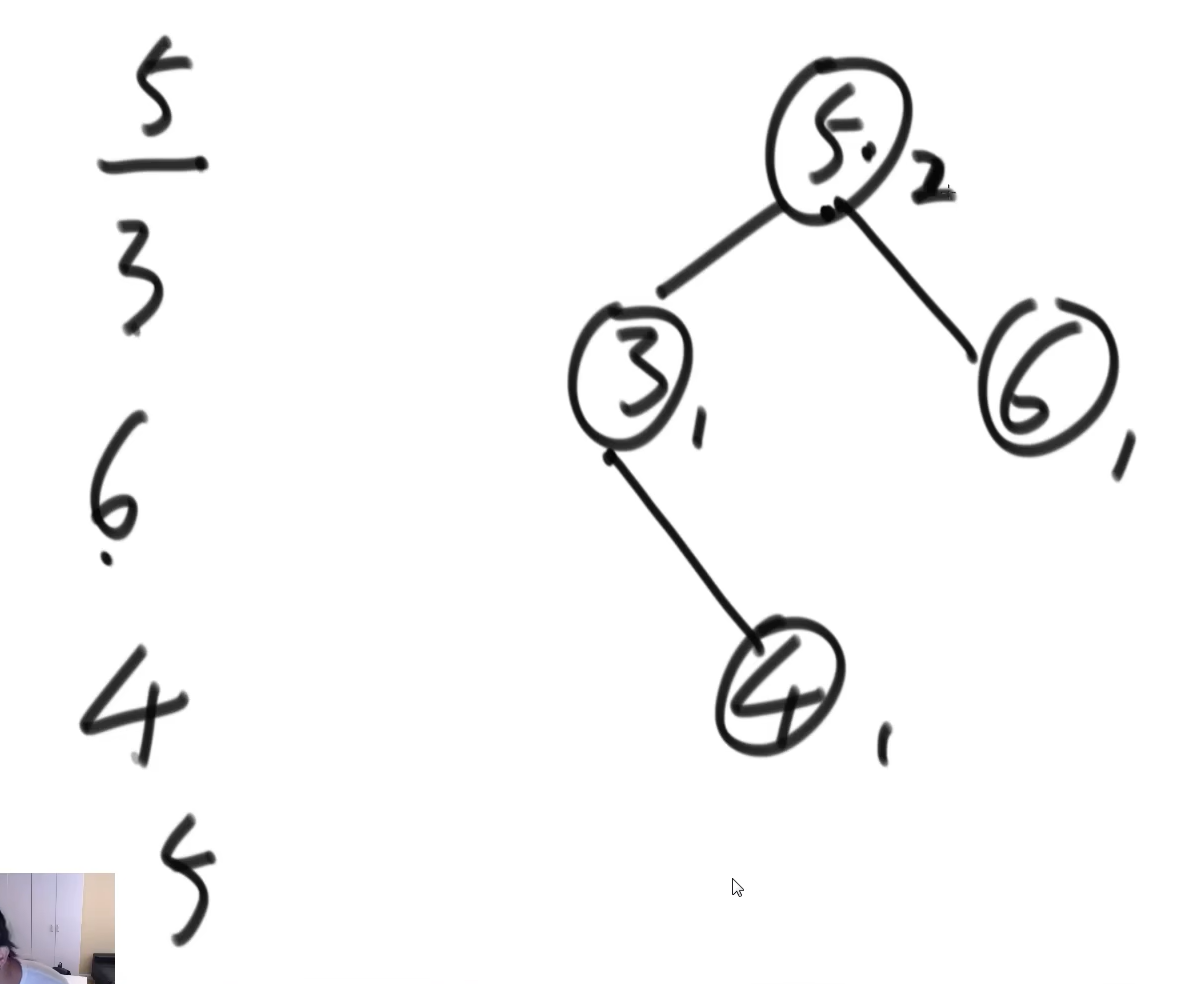 5
3
6
4
5
5 2
3 1
6 1
4 1